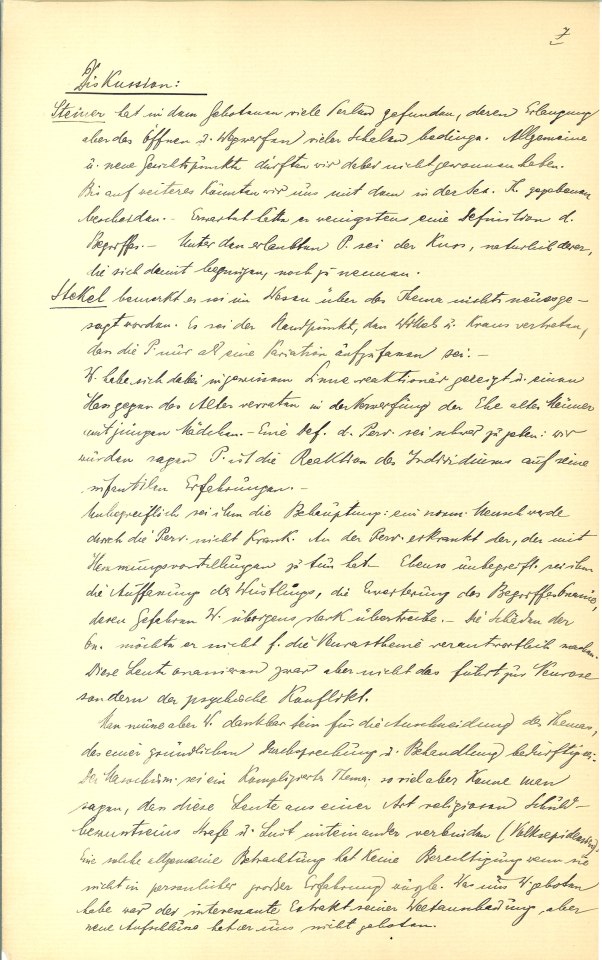 7
Diskussion:
Steiner hat in dem Gebotenen viele Perlen gefunden, deren Erlangung
aber das Öffnen u. Wegwerfen vieler Schalen bedinge. Allgemeine
u. neue Gesichtspunkte dürften wir dabei nicht gewonnen haben.
Bis auf weiteres könnten wir uns mit dem in der Sex. Th. gegebenen
bescheiden. – Erwartet hätte er wenigstens eine Definition d.
Begriffes. – Unter den erlaubten P. sei der Kuss, natürlich derer,
die sich damit begnügen, noch zu nennen.
Stekel bemerkt es sei im Wesen über das Thema nichts neues ge-
sagt worden. Es sei der Standpunkt, den u. Kraus vertreten,
dass die P. nur als eine Variation aufzufassen sei. –
W. habe sich dabei in gewissem Sinne reaktionär gezeigt u. einen
Hass gegen das Alter verraten in der Verwerfung der Ehe alter Männer
mit jungen Mädchen. – Eine Def. d. Perv. sei schwer zu geben: wir
würden sagen P. ist die Reaktion des Individiums auf seine
infantilen Erfahrungen. –
Unbegreiflich sei ihm die Behauptung: ein norm. Mensch werde
durch die Perv. nicht krank. An der Perv. erkrankt der, der mit
Hemmungsvorstellungen zu tun hat. Ebenso unbegreifl. sei ihm
die Auffassung des Wüstlings, die Erweiterung des Begriffes Onanie,
deren Gefahren W. übrigens stark übertreibe. – Die Schäden der
On. möchte er nicht f. die Neurasthenie verantwortlich machen.
Diese Leute onanieren zwar aber nicht das führt zur Neurose
sondern der psychische Konflikt.
Man müsse aber W. dankbar sein für die Anschneidung des Themas,
das einer gründlichen Durchsprechung u. Behandlung bedürftig sei.
Der Masochism. sei ein kompliziertes Thema; so viel aber könne man
sagen, dass diese Leute aus einer Art religiösen Schuld-
bewusstseins Strafe u. Lust miteinander verbinden
Eine solche allgemeine Betrachtung hat keine Berechtigung wenn sie
nicht in persönlicher grosser Erfahrung Was uns W. geboten
habe war der interessante Extrakt seiner Weltanschauung, aber
neue Aufschlüsse hat er uns nicht geboten.